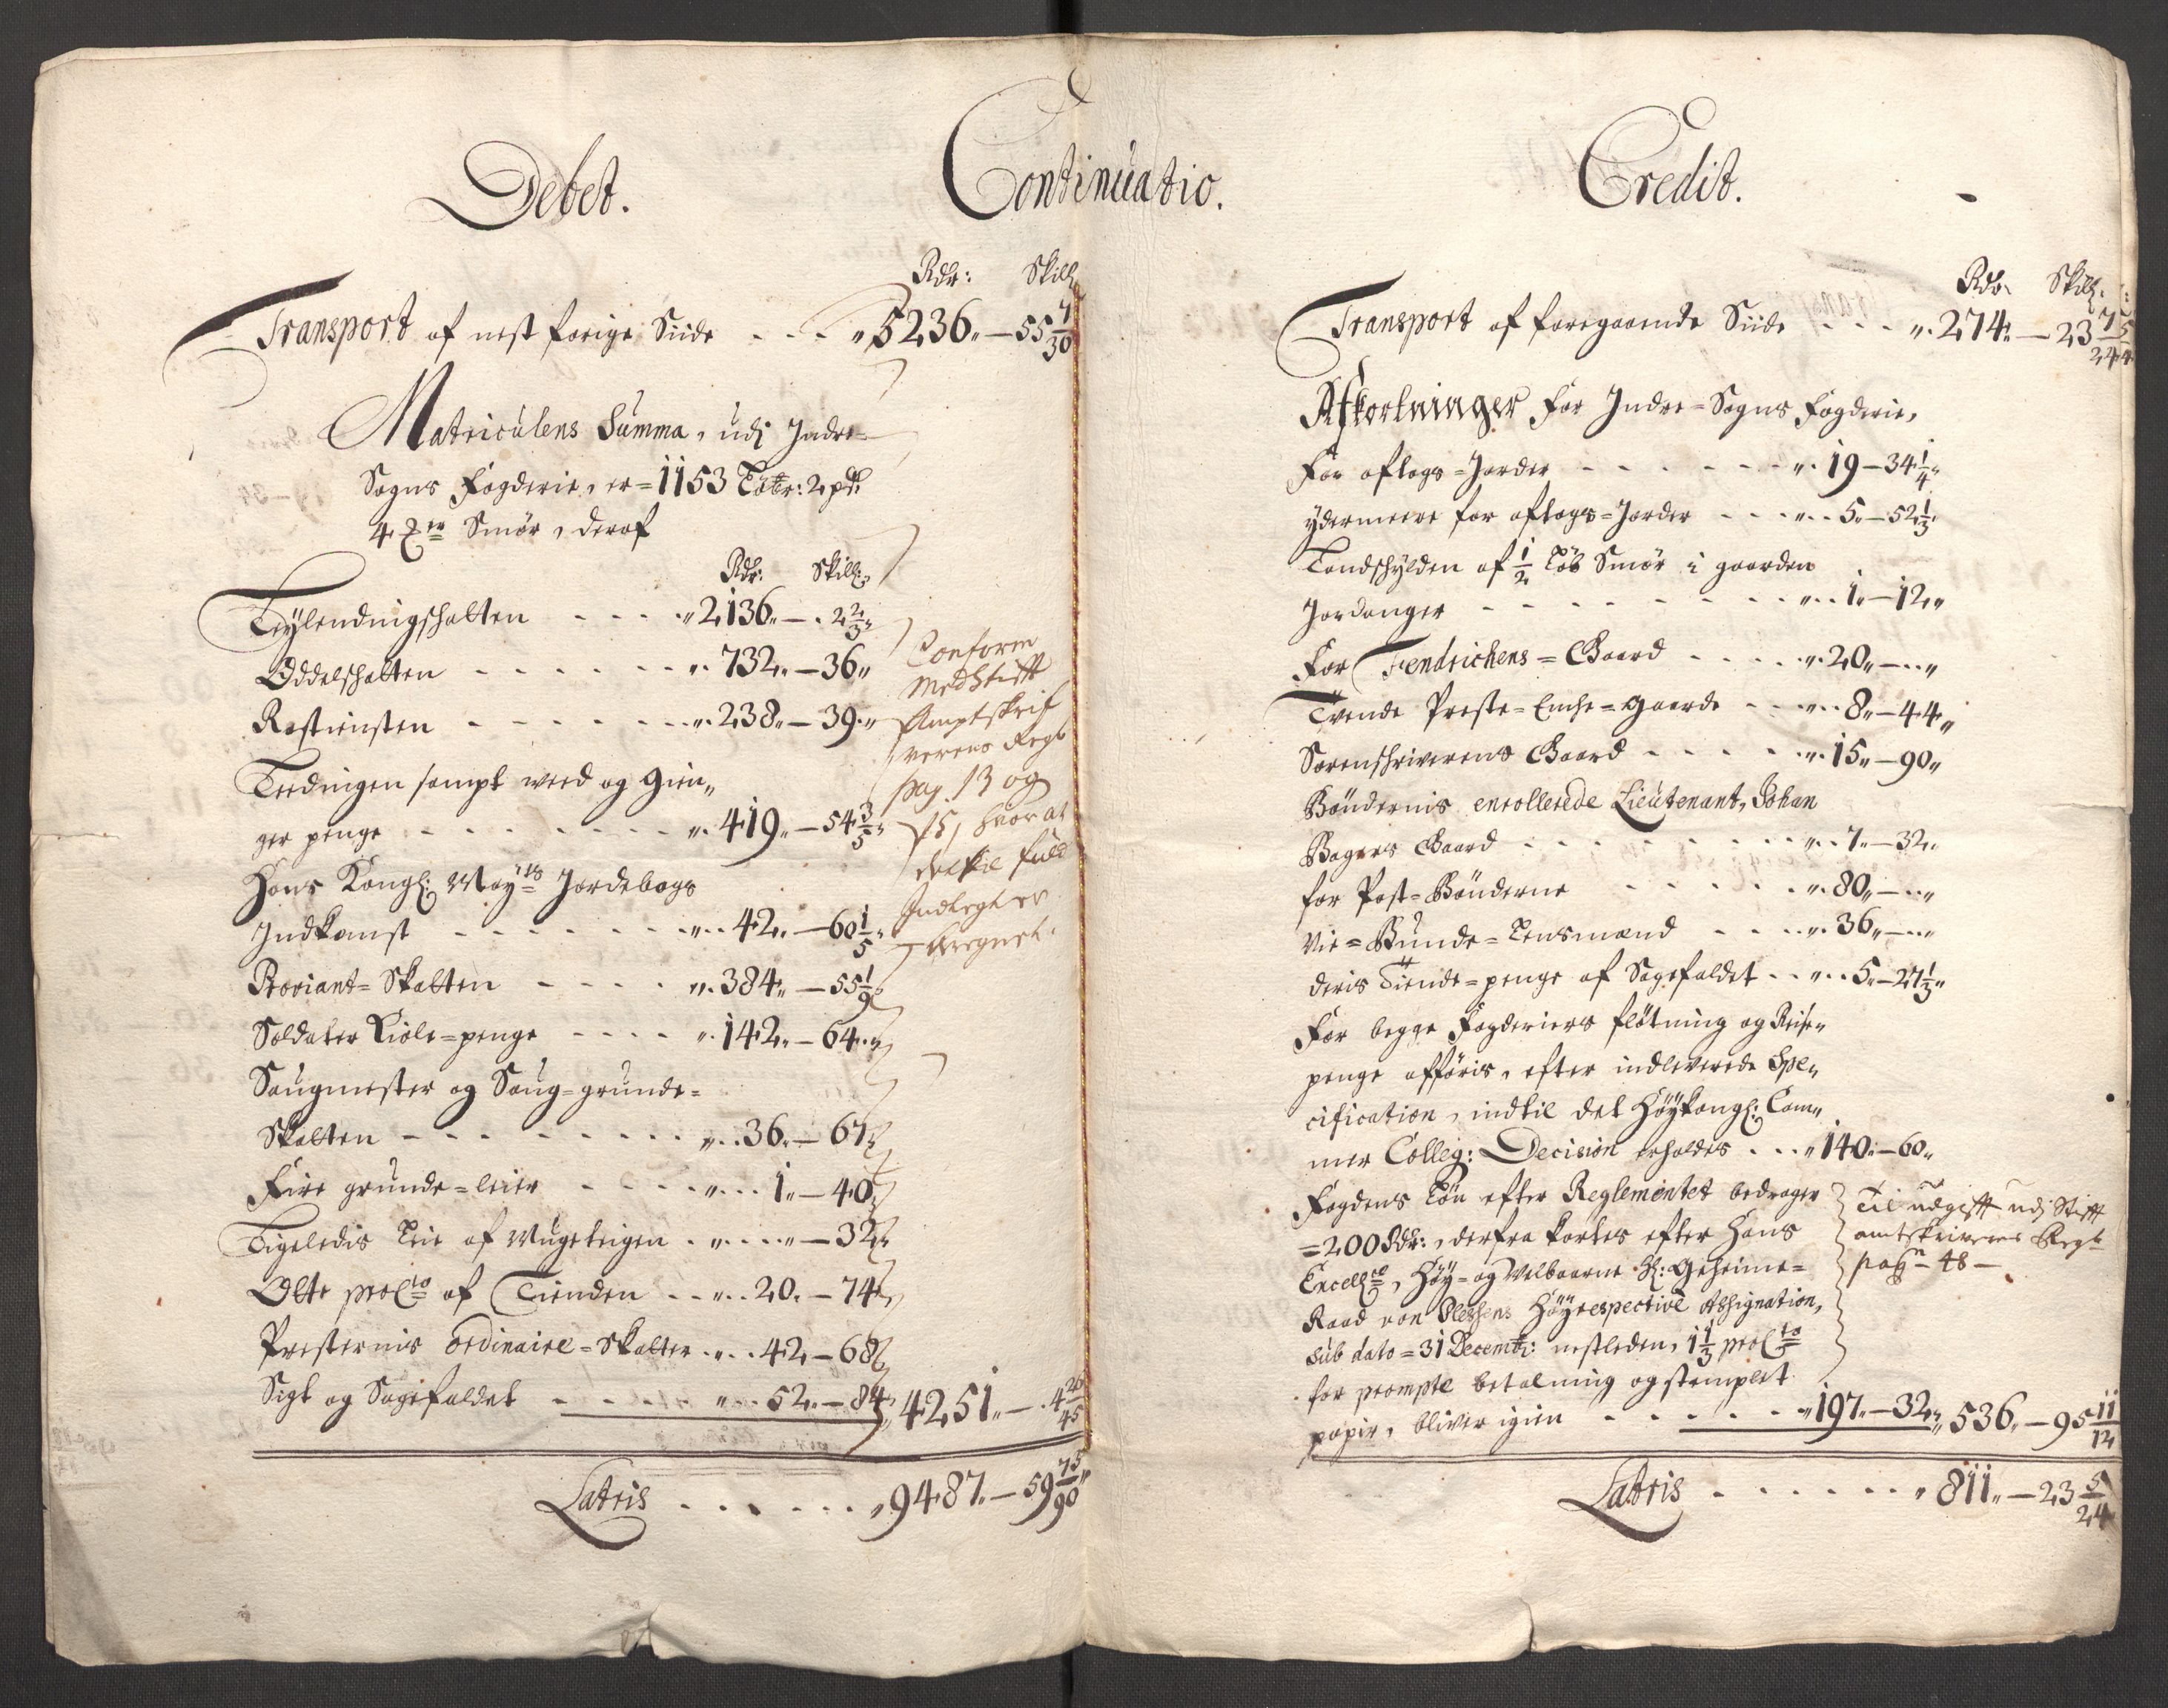 Debet.
Continuatio.
Rdr: Skill
Transport af nest forige Siide - - - " 5236" — 55 7/30
Matriculens Summa, udj Indre-
Sogns Fogderie, er = 1153 Løbr: 2 pd:
4 Mrr Smør, deraf
Rdr: Skill:
Leylendingschatten - - - - " 2136" — . 2 2/3 "
Oddelschatten - - - - - - " . 732" — 36 "
Rostiensten - - - - - - - " . 238" — 39 . "
Leedingen sampt weed og Gien"
ger penge - - - - - - - " . 419" — 54 3/5 "
Hans Kongl: Maytts Jordebogs
Indkomst - - - - - - - " . . 42" — 60 1/5 "
Proviant = Skatten - - - - " . 384" — 55 1/9
Soldater Kiole = penge - - - - " . 142" — 64 . "
Saugmester og Saug = grunde =
Skatten - - - - - - - - - " . . 36" — 67
Fire grunde = leier - - - - " . . . 1" — 40
Tigeledis Leie af - " . . . . " — 32
Otte procto af Tienden - - " . . 20. — 74
Presternis ordinaire = Skatter . " . . 42 — 68
Sigt og Sagefaldet - - - - " . . . 52" — 84 " 4251" — . 4 26/45
Latris - - - - - - " 9487" — 59 75/90 "
Conform
med Stifft
Amptskrif
verens Regb
pag. 13 og
15, hvor at
deelske fuld
Indlegt er
beregnet.
Credit.
Rdr Skill:
Transport af foregaaende Siide - - - " . 274" — 23 7/24
Afkortninger for Indre = Sogns Fogderie,
For aflags = Jorder - - - - - - " . 19 — 34 1/4 "
ydermeere for aflags = Jorder - - - " . . 5" — 52 1/3 "
Landschylden af 1/2 Løb Smør i gaarden
Jordanger - - - - - - - - - " . . 1" — 12 "
For Fendrichens = Gaard - - - - " . 20" — . . "
Tvende Preste = Enche = gaarde - - " . . 8" — 44 "
Sorenschriverens Gaard - - - - - " . 15" — 90 "
Bøndernis enrollerede Lieutenant, Johan
Bagers Gaard - - - - - - - - " . . 7" — 32 .
for Post = Bønderne - - - - - " . 80" — . . "
Vie = Bunde = Lensmænd - - - - " . 36" — . . "
deris Tiende = penge af Sagefaldet - - " . . 5" — 27 1/3 "
For begge Fogderiers fløtning og Reise"
penge afføris, efter indleverede Spe"
cification, indtil det Høykongl: Cam"
mer Colleg: Decision erholdes . . . " 140" — 60 "
Fogdens Løn efter Reglementet bedrager
= 200 Rdr:, derfra kortes efter Hans
Excellce, Høy = og Velbaarne Hr: Geheime =
Raad von Plessens Høyrespective Assignation,
sub dato = 31 Decembr: nestleden, 1 1/3 procto
for prompte betalning og stemplet
papir, bliver igien - - - - - " 197" — 32 " 536" — 95 11/12
Til udgifft udj Stifft
amtskriverens Regb
pagn 48 —
Latris - - - - - - " 811" — 23 5/24